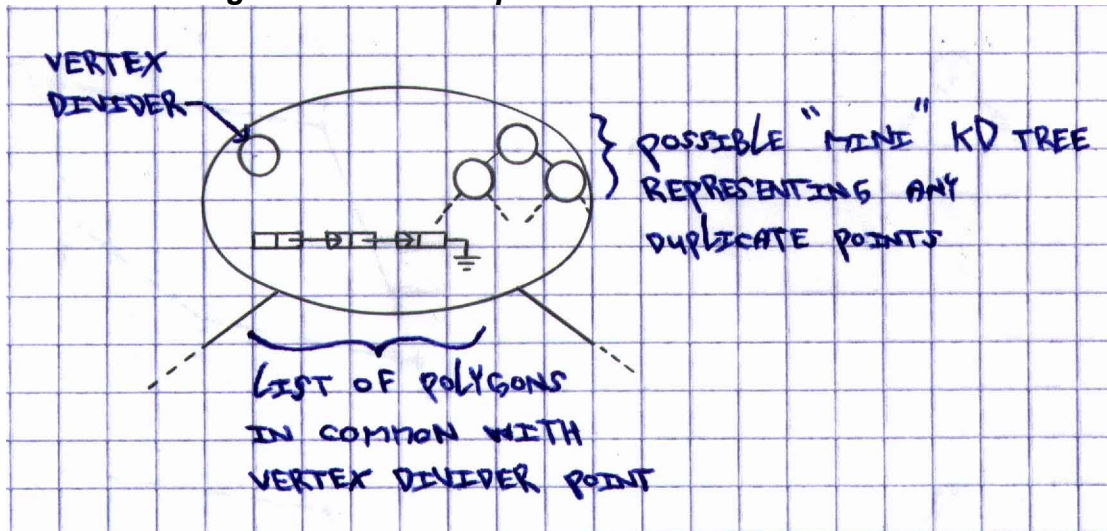 VERTEX
DIVIDER
POSSIBLE "MINI" KD TREE
REPRESENTING ANY
DUPLICATE POINTS
LIST OF POLYGONS
IN COMMON WITH
VERTEX DIVIDER POINT